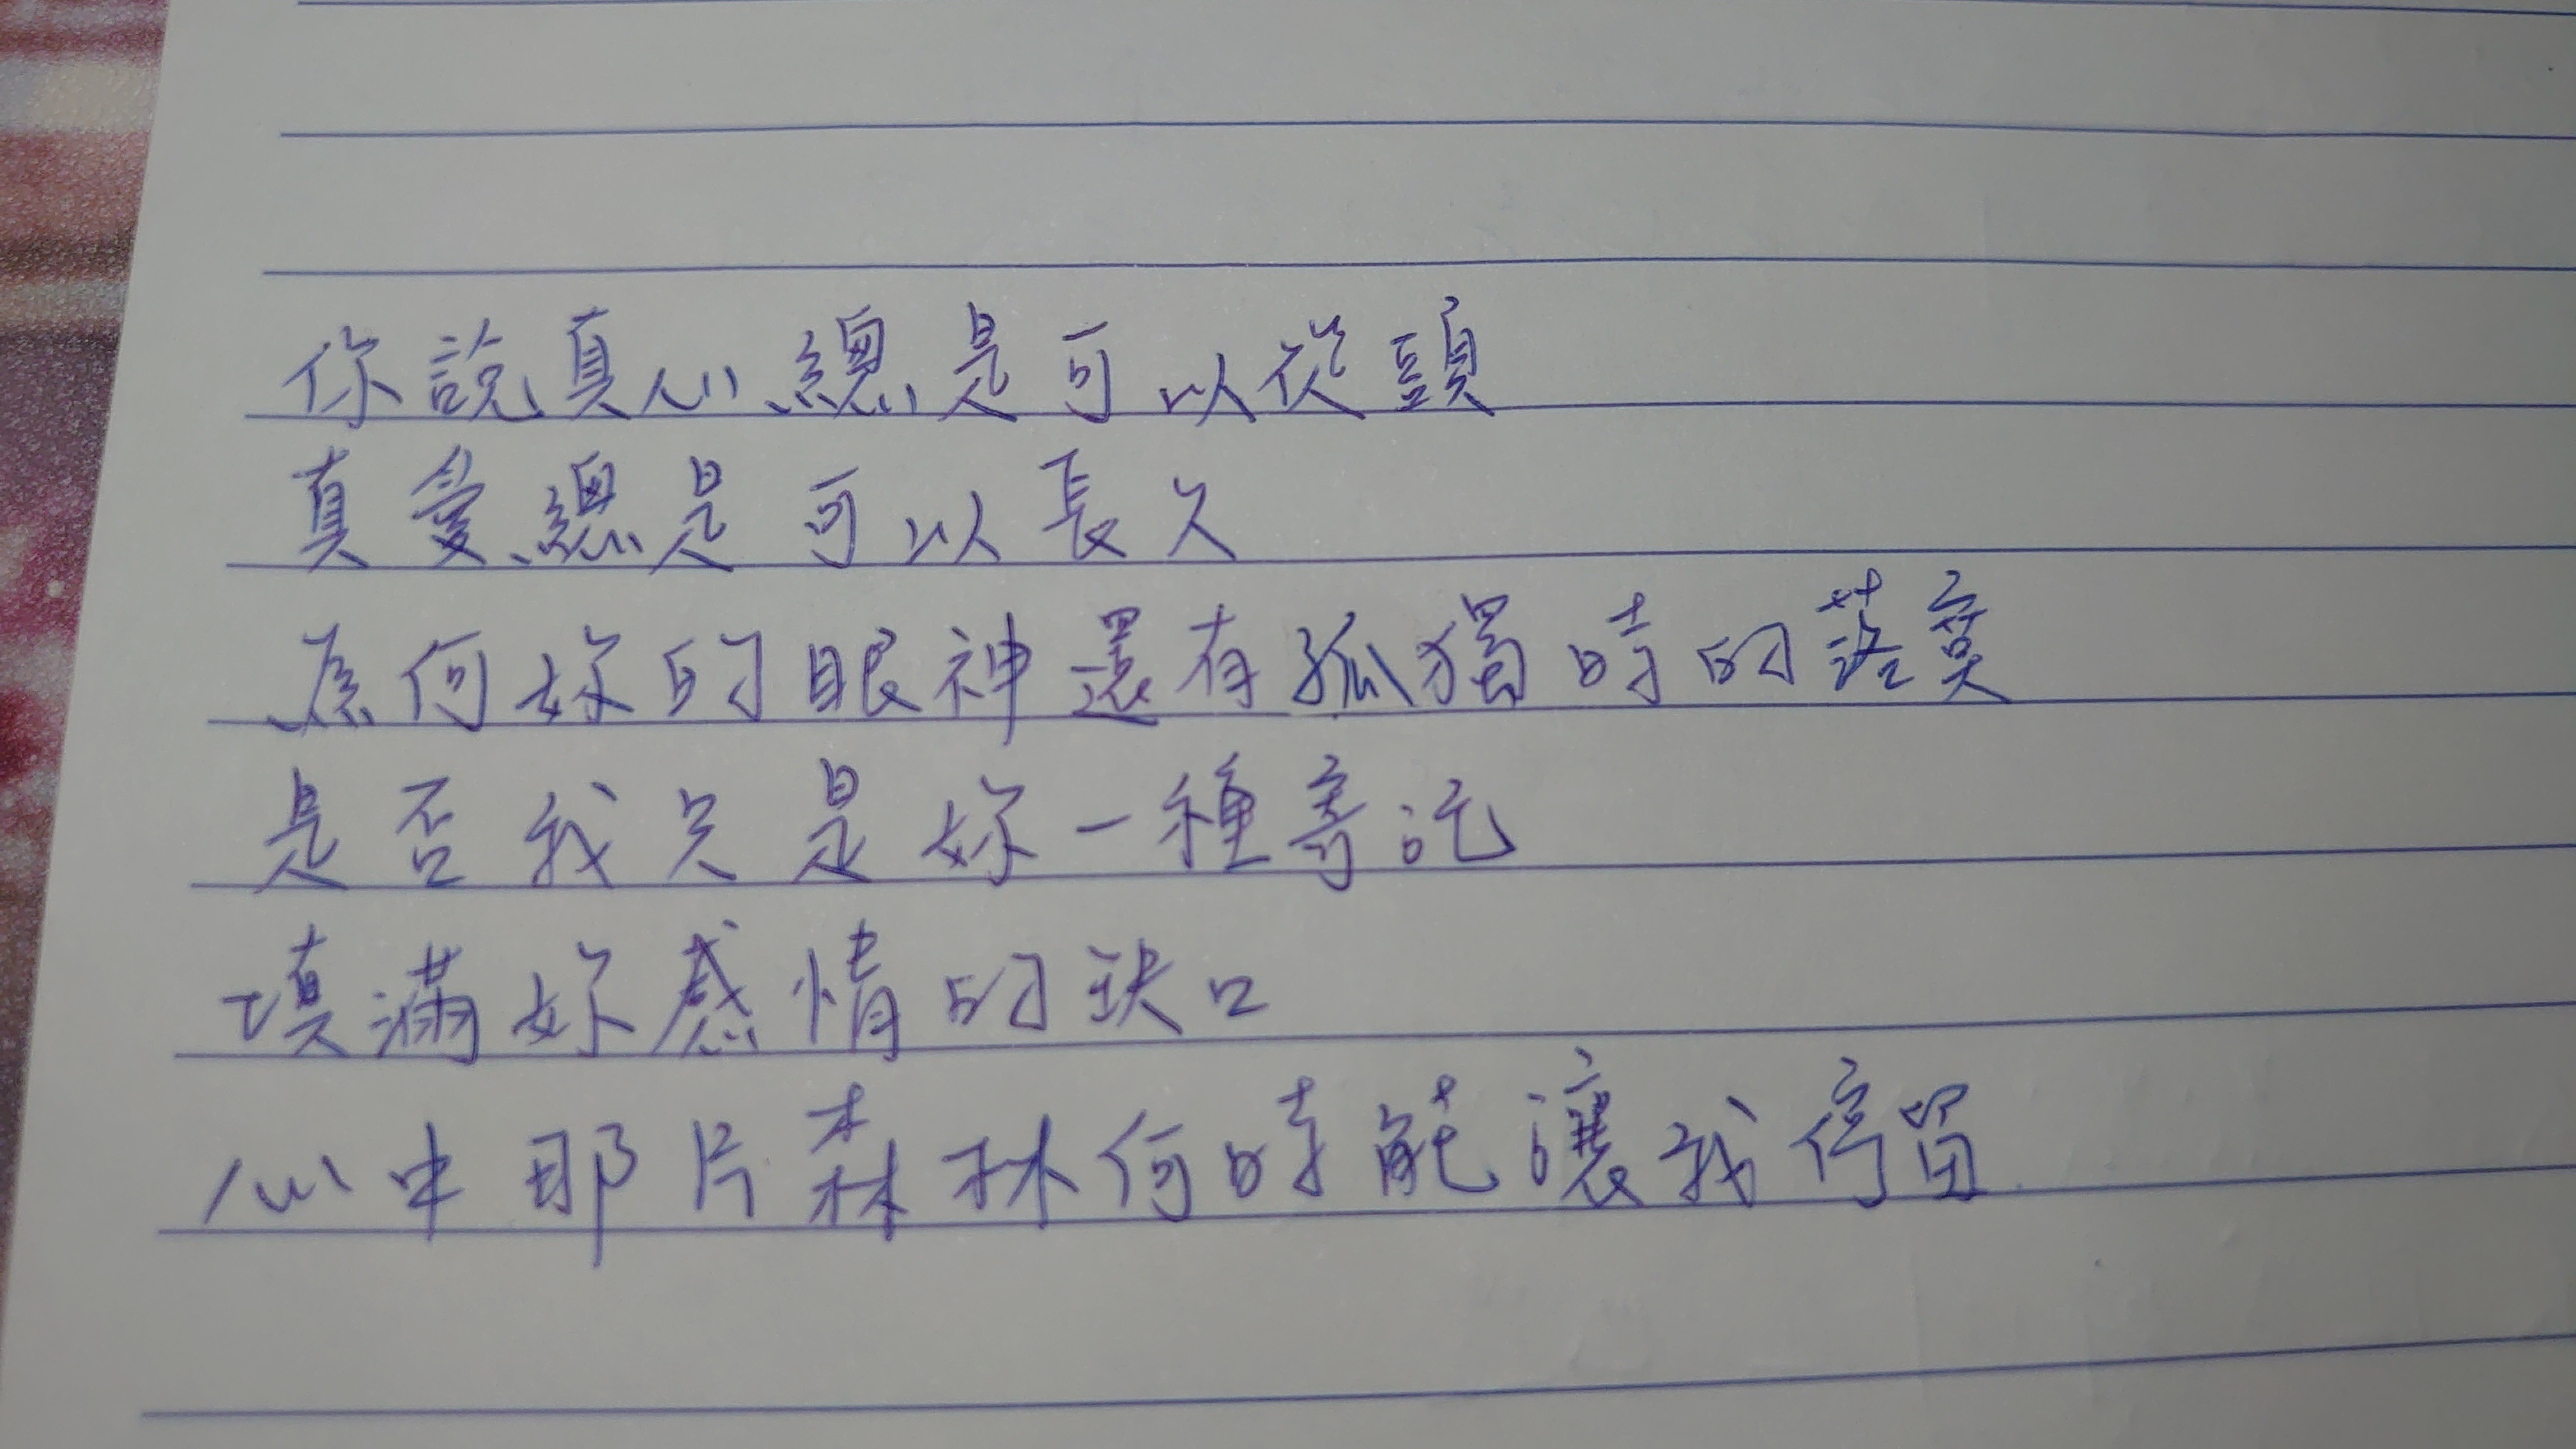 你說真心總是可以從頭
真愛總是可以長久
為何妳的眼神還有孤獨時的落寞
是否我只是妳一種寄託
填滿妳感情的缺口
心中那片森林何時能讓我停留